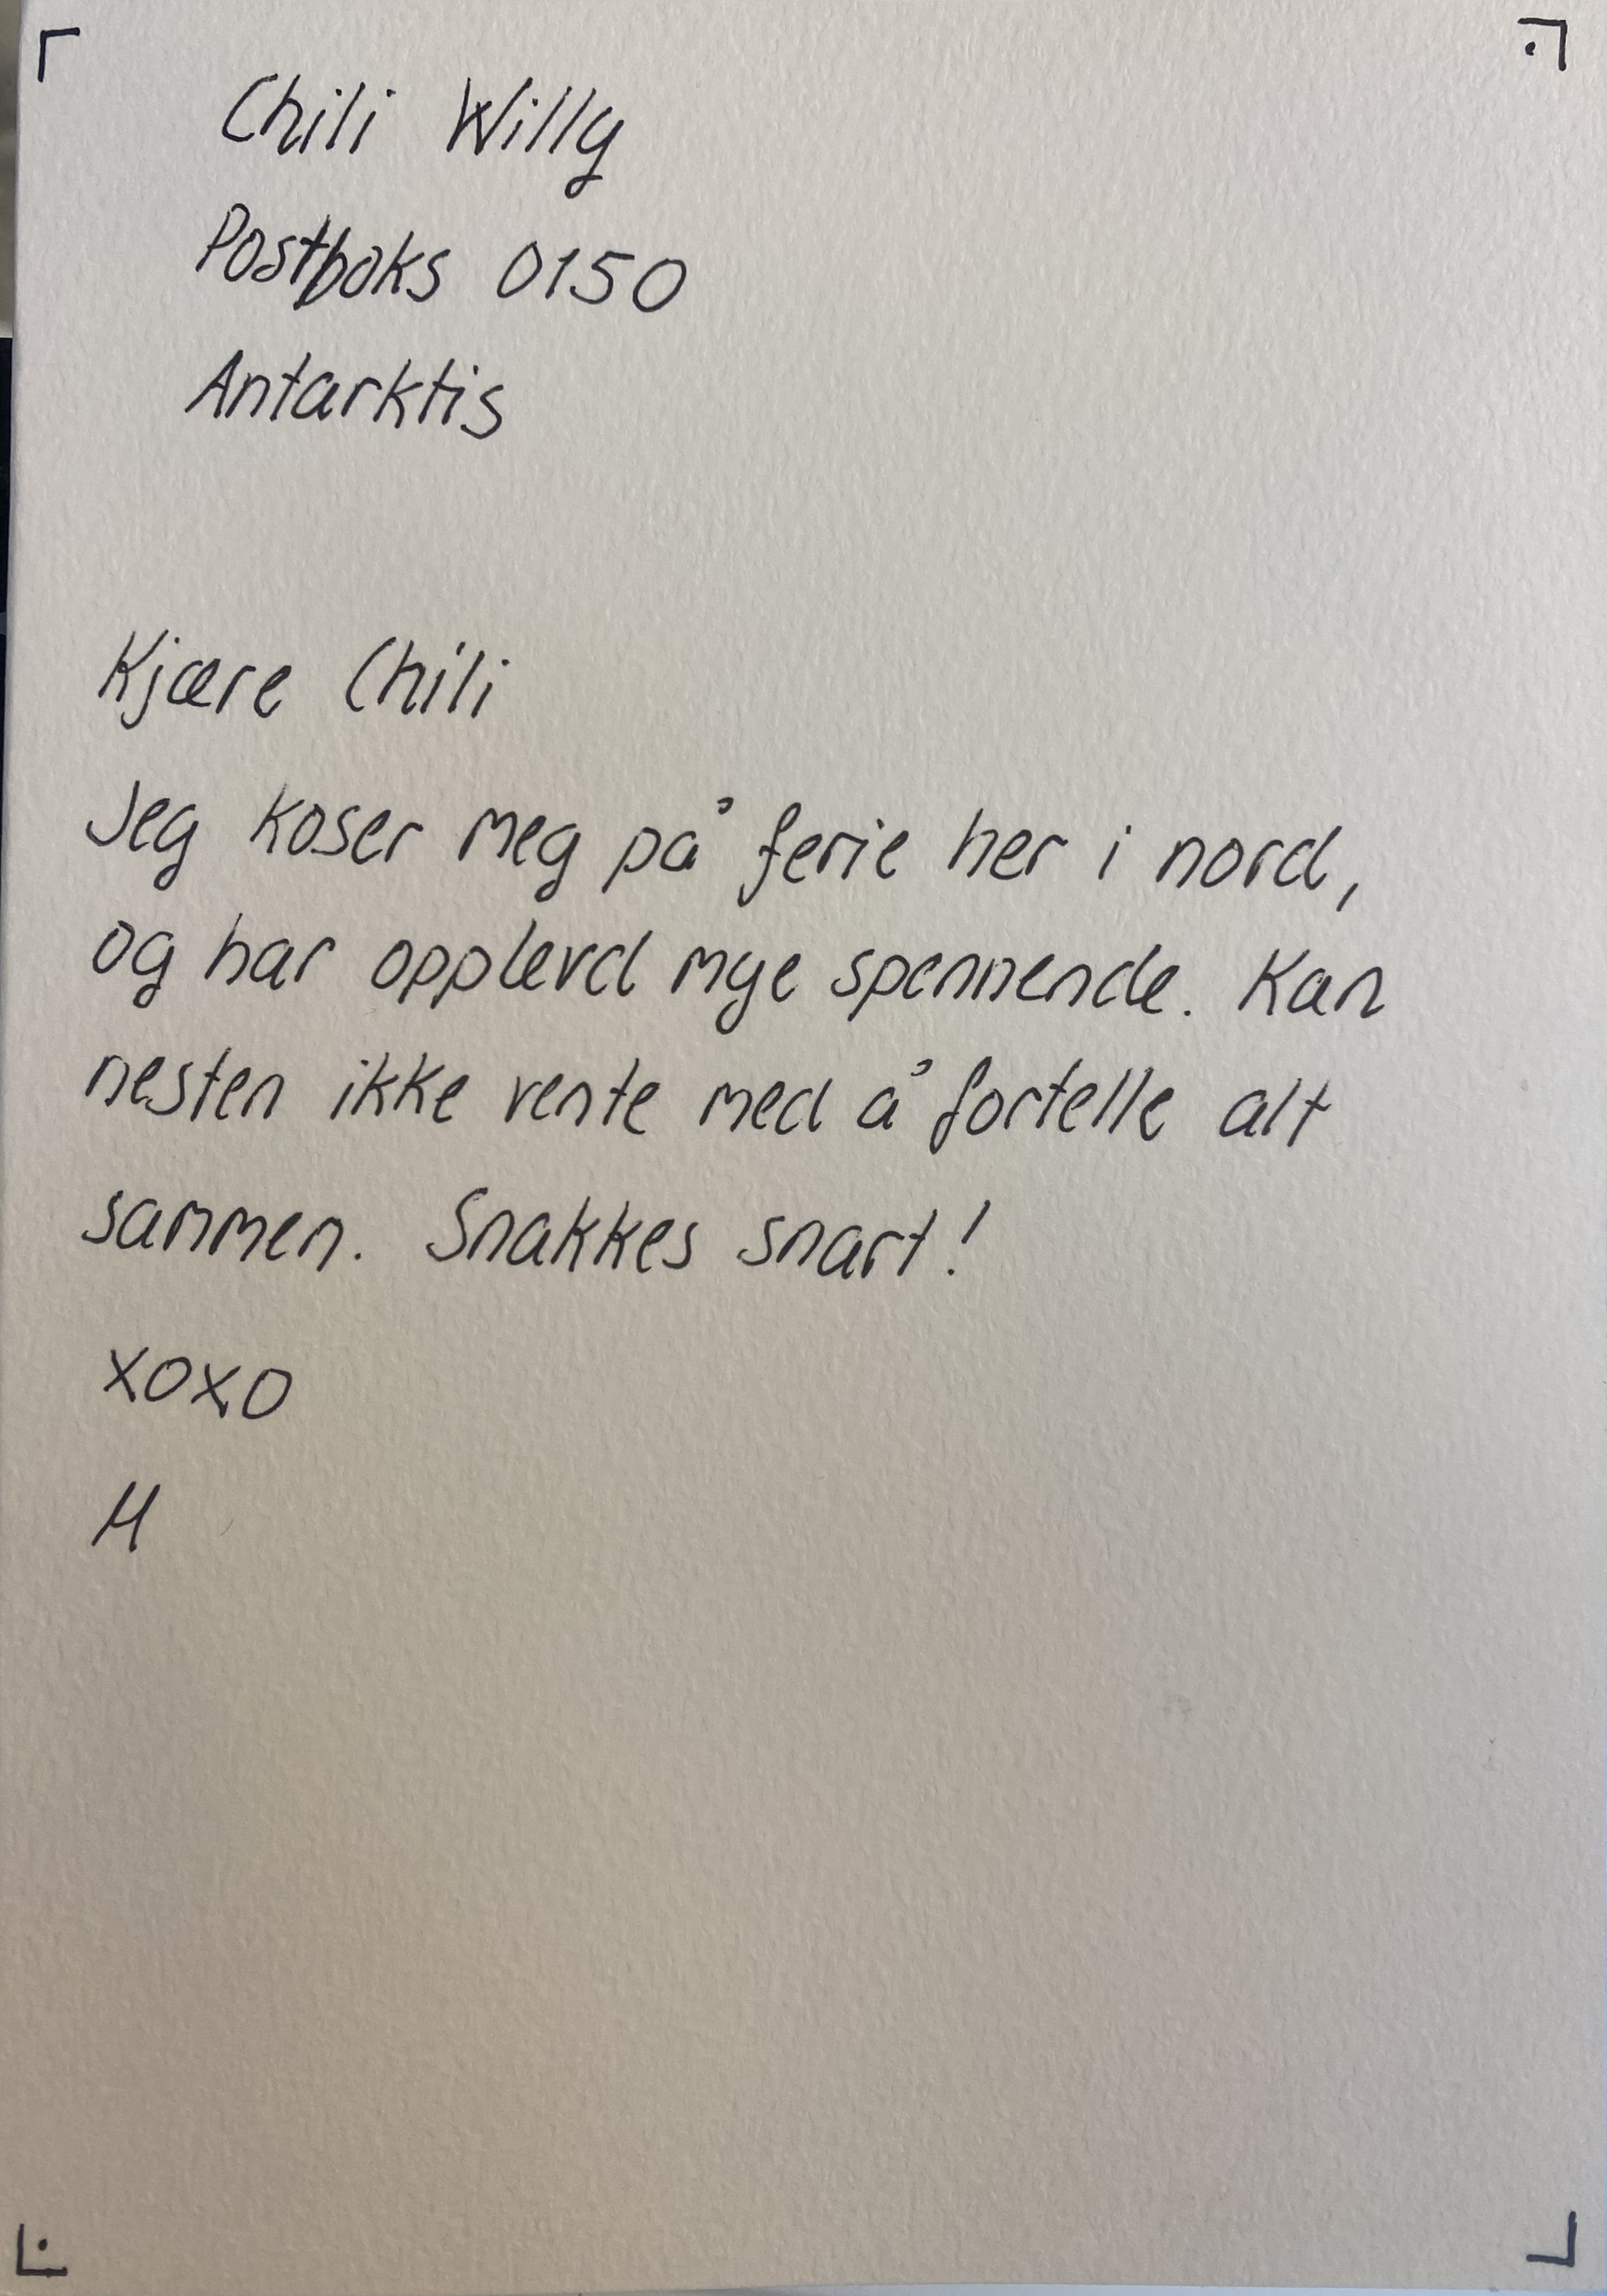 Chili Willy
Postboks 0150
Antarktis
Kjære Chili
Jeg koser meg på ferie her i nord,
og har opplevd mye spennende. Kan
nesten ikke vente med å fortelle alt
sammen. Snakkes snart!
XOXO
H